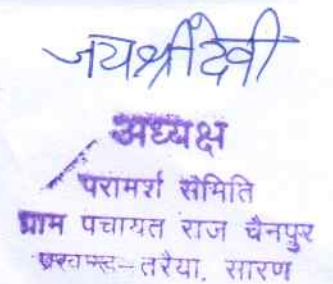 जयश्री देवी
अध्यक्ष
परामर्श समिति
ग्राम पंचायत राज चैनपुर
प्रखण्ड-तरैया, सारण